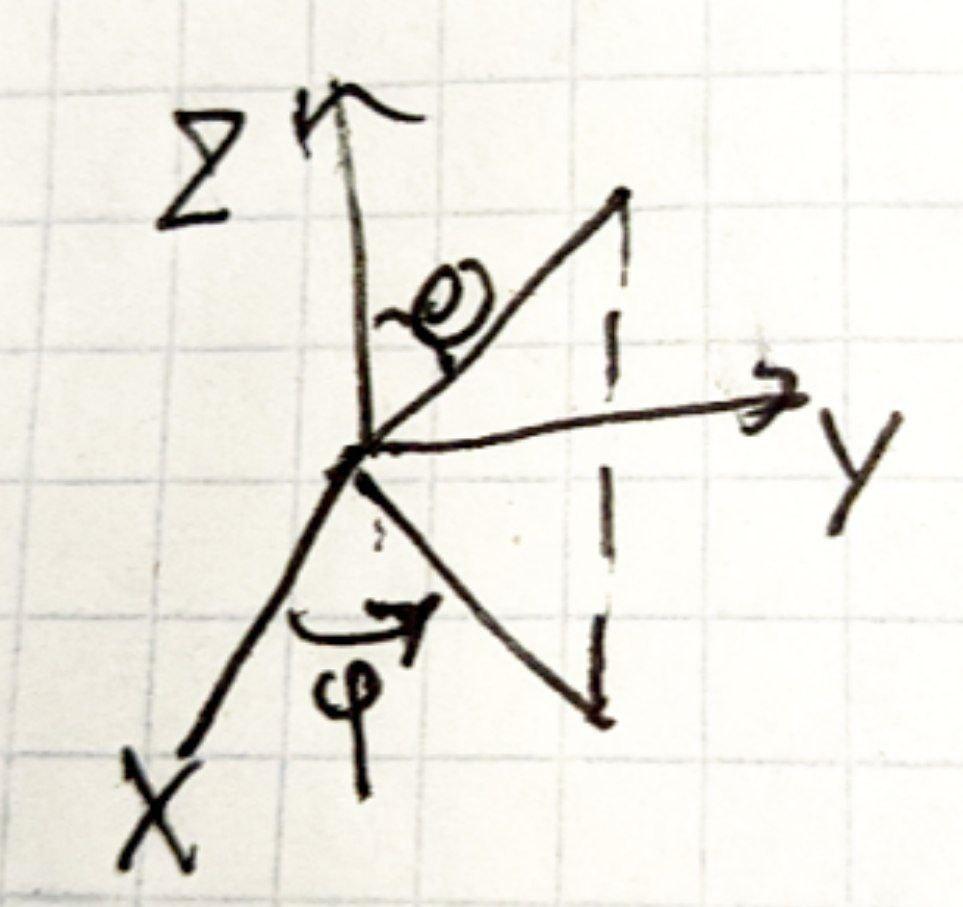 Z
Θ
Y
φ
X